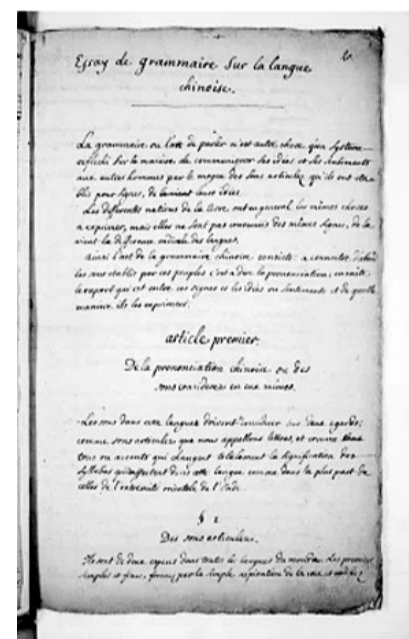 20.
Essay de grammaire Sur la langue
chinoise.
La grammaire ou l'art de parler n'est autre chose qu'un Systême
réfléchi Sur la maniere de communiquer Ses idées et Ses Sentiments
aux autres hommes par le moyen des Sons articulez qu'ils ont éta
blis pour Signes, de leurs idées
Les differentes nations de la terre ont en general les mêmes choses
a exprimer, mais elles ne Sont pas convenues des mêmes Signes, de la
vient la difference radicale des langues.
ainsi l'art de la grammaire chinoise consiste: a connoitre d'abord
les sons etablis par ces peuples c'est a dire la prononciation; ensuite
le raport qui est entre ces Signes et les idées ou Sentiments et de quelle
maniere ils les expriment.
article premier.
De la prononciation chinoise ou des
sons considerez en eux mêmes.
Les sons dans cette langue doivent considerer deux egards;
comme sons articulez que nous appellons lettres, et comme
tons ou accents qui changent totalement la signification des
syllabes dans cette langue comme dans la plus part de
celles de l'extremité orientale de l'Inde.
§ 1
Des sons articulez.
Ils sont de deux especes dans toutes les langues du monde. Les premiers
simples et formez par la simple aspiration de la voix et